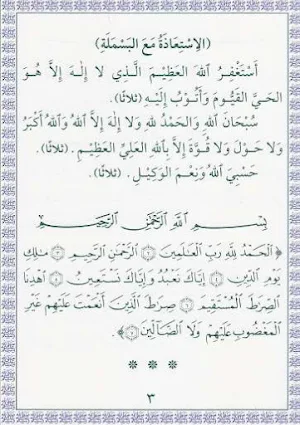 (الِاسْتِعَاذَةُ مَعَ البَسْمَلَةِ)
أَسْتَغْفِرُ اللهَ العَظِيْمَ الَّذِي لا إِلٰهَ إِلاَّ هُوَ
الحَيَّ القَيُّومَ وَأَتُوْبُ إِلَيْهِ (ثلاثًا).
سُبْحَانَ اللهِ وَالحَمْدُ للهِ وَلا إِلٰهَ إِلاَّ اللهُ وَاللهُ أَكْبَرُ
وَلا حَوْلَ وَلا قُوَّةَ إِلاَّ بِاللهِ العَلِيِّ العَظِيْمِ. (ثلاثًا).
حَسْبِيَ اللهُ وَنِعْمَ الوَكِيْلُ. (ثلاثًا).
بِسْمِ اللَّهِ الرَّحْمَٰنِ الرَّحِيمِ
﴿الحَمْدُ لِلَّهِ رَبِّ العَالَمِينَ ۝١ الرَّحْمَٰنِ الرَّحِيمِ ۝٢ مَالِكِ
يَوْمِ الدِّينِ ۝٣ إِيَّاكَ نَعْبُدُ وَإِيَّاكَ نَسْتَعِينُ ۝٤ اهْدِنَا
الصِّرَاطَ المُسْتَقِيمَ ۝٥ صِرَاطَ الَّذِينَ أَنْعَمْتَ عَلَيْهِمْ غَيْرِ
المَغْضُوبِ عَلَيْهِمْ وَلَا الضَّالِّينَ ۝٦﴾.
* * *
٣